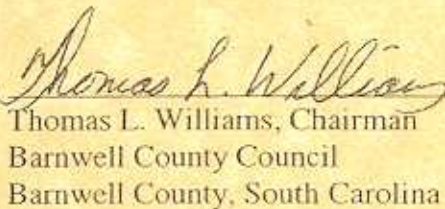 Thomas L. Williams
Thomas L. Williams, Chairman
Barnwell County Council
Barnwell County, South Carolina